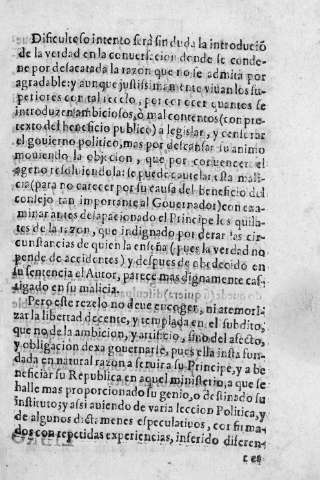 Dificultoso intento será sin duda la introdució
de la verdad en la conuersacion donde se conde-
ne por desacatada la razon que no se admita por
agradable: y aunque justissimamente viuan los su-
periores con tal rezelo, por conocer quantos se
introduzen ambiciosos, ò mal contentos (con pre-
texto del beneficio publico) a legislar, y censurar
el gouierno politico, mas por descansar su animo
mouiendo la objecion, que por conuencer el
ageno resoluiendola: se puede cautelar esta mali-
cia (para no carecer por su causa del beneficio del
consejo tan importante al Governador) con exa-
minar antes desapacionado el Principe los quila-
tes de la razon, que indignado ponderar las cir-
cunstancias de quien la enseña (pues la verdad no
pende de accidentes) y despues de obedecido en
su sentencia el Autor, parece mas dignamente cas-
tigado en su malicia.
Pero este rezelo no deue encoger, ni atemori-
zar la libertad decente, y templada en el subdito,
que no de la ambicion, y artificio, sino del afecto,
y obligacion dexa gouernarse, pues ella insta fun-
dada en natural razon a seruir a su Principe, y a be
neficiar su Republica en aquel ministerio, a que se
halle mas proporcionado su genio, o destinado su
instituto; y assi auiendo de varia leccion Politica, y
de algunos dictamenes especulatiuos, confirma-
dos con repetidas experiencias, inferido diferen-
tes